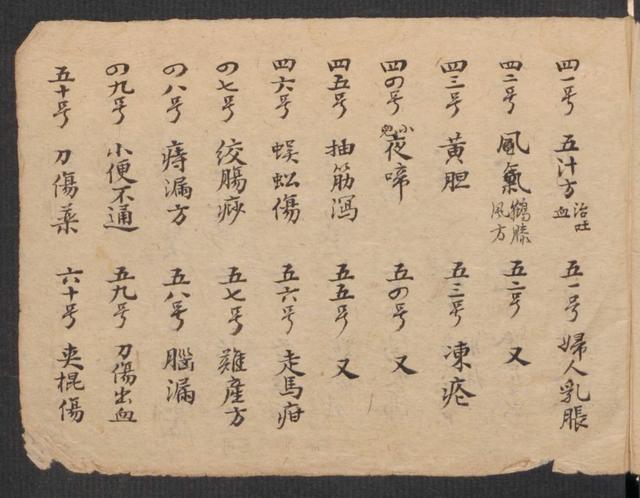 四一号 五汁方 治吐血
四二号 風氣 鶴膝風方
四三号 黄胆
四四号 小児夜啼
四五号 抽筋瀉
四六号 蜈蚣傷
四七号 絞腸痧
四八号 痔漏方
四九号 小便不通
五十号 刀傷薬
五一号 婦人乳脹
五二号 又
五三号 凍疮
五四号 又
五五号 又
五六号 走馬疳
五七号 難産方
五八号 腦漏
五九号 刀傷出血
六十号 夾棍傷